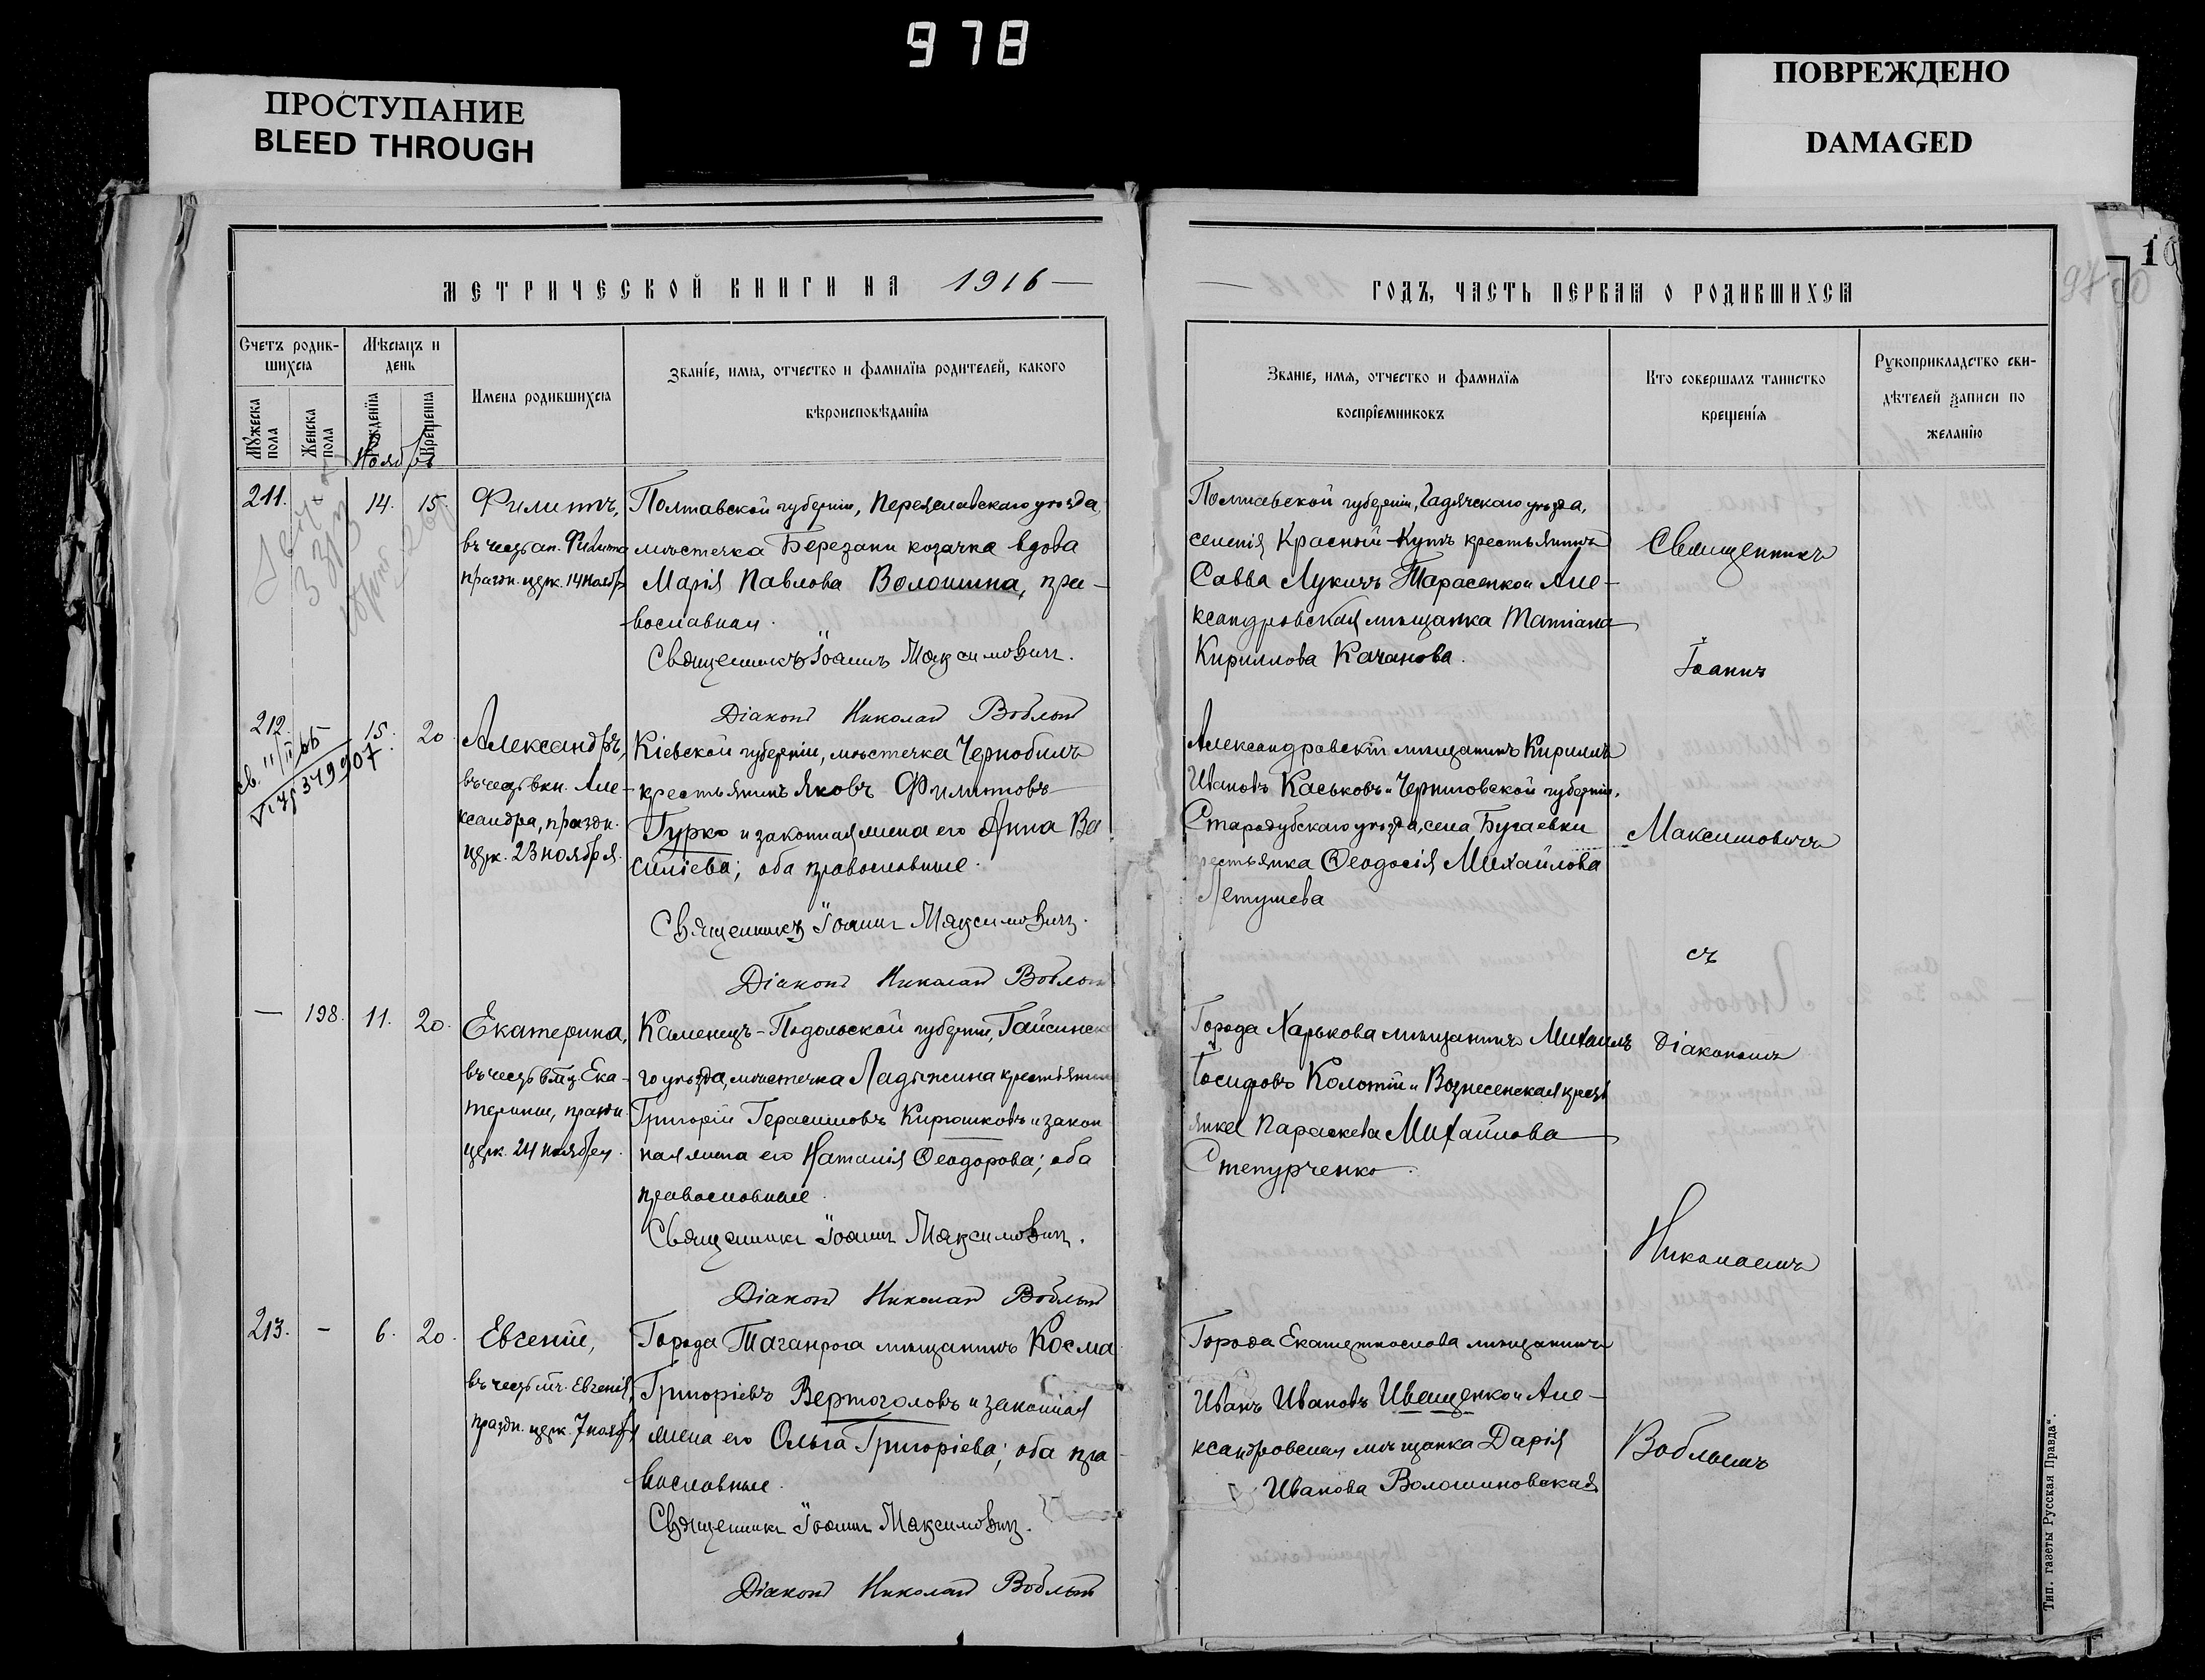 978
ПРОСТУПАНИЕ
BLEED THROUGH
ПОВРЕЖДЕНО
DAMAGED
МЕТРИЧЕСКОЙ КНИГИ НА 1916
Счетъ родив-
шихся
Мѣсяцъ и
день
Мужеска
пола
Женска
пола
Рожденія
Крещенія
Имена родившихся
Званіе, имя, отчество и фамилія родителей, какого
вѣроисповѣданія
Ноябрь
211. 14. 15. Филиппъ,
въ честь ап. Филиппа
праздн. церк. 14 ноябр
Полтавской губерніи, Переяславскаго уѣзда,
мѣстечка Березани козачка вдова
Марія Павлова Волошина, пра-
вославная.
Священникъ Іоаннъ Максимовичъ.
Діаконъ Николай Воблый
212. 15. 20. Александръ,
св. 11/II 66
379907
въ честь вкн. Але-
ксандра, праздн.
церк. 23 ноября.
Кіевской губерніи, мѣстечка Чернобыль
крестьянинъ Яковъ Филипповъ
Гурко и законная жена его Анна Ва
силіева; оба православные.
Священникъ Іоаннъ Максимовичъ.
Діаконъ Николай Воблый
— 198. 11. 20. Екатерина,
въ честь вмц. Ека-
терины, праздн.
церк. 24 ноября.
Каменецъ-Подольской губерніи, Гайсинска
го уѣзда, мѣстечка Ладыжина крестьянинъ
Григорій Герасимовъ Кирюшковъ и закон
ная жена его Наталія Ѳеодорова; оба
православные.
Священникъ Іоаннъ Максимовичъ.
Діаконъ Николай Воблый
213. — 6. 20. Евгеній,
въ честь мч. Евгенія,
праздн. церк. 7 нояб
Города Таганрога мѣщанинъ Косма
Григоріевъ Вертоголовъ и законная
жена его Ольга Григоріева; оба пра
вославные.
Священникъ Іоаннъ Максимовичъ.
Діаконъ Николай Воблый
ГОДЪ, ЧАСТЬ ПЕРВАЯ О РОДИВШИХСЯ
Званіе, имя, отчество и фамилія
воспріемниковъ
Кто совершалъ таинство
крещенія
Рукоприкладство сви-
дѣтелей записи по
желанію
Полтавской губерніи, Гадячскаго уѣзда,
селенія Красный-Кутъ крестьянинъ
Савва Лукичъ Тарасенко и Але-
ксандровская мѣщанка Татіана
Кириллова Качанова.
Александровскій мѣщанинъ Кириллъ
Ивановъ Каськовъ и Черниговской губерніи,
Стародубскаго уѣзда, села Бугаевки
крестьянка Ѳеодосія Михайлова
Летушева
Города Харькова мѣщанинъ Михаилъ
Іосифовъ Колотій и Вознесенская кресть
янка Параскева Михайлова
Степурченко.
Города Екатеринослава мѣщанинъ
Иванъ Ивановъ Иващенко и Але-
ксандровская мѣщанка Дарія
Иванова Волошиновская
Священникъ
Іоаннъ
Максимовичъ
съ
Діакономъ
Николаемъ
Воблымъ
Тип. газеты „Русская Правда“.